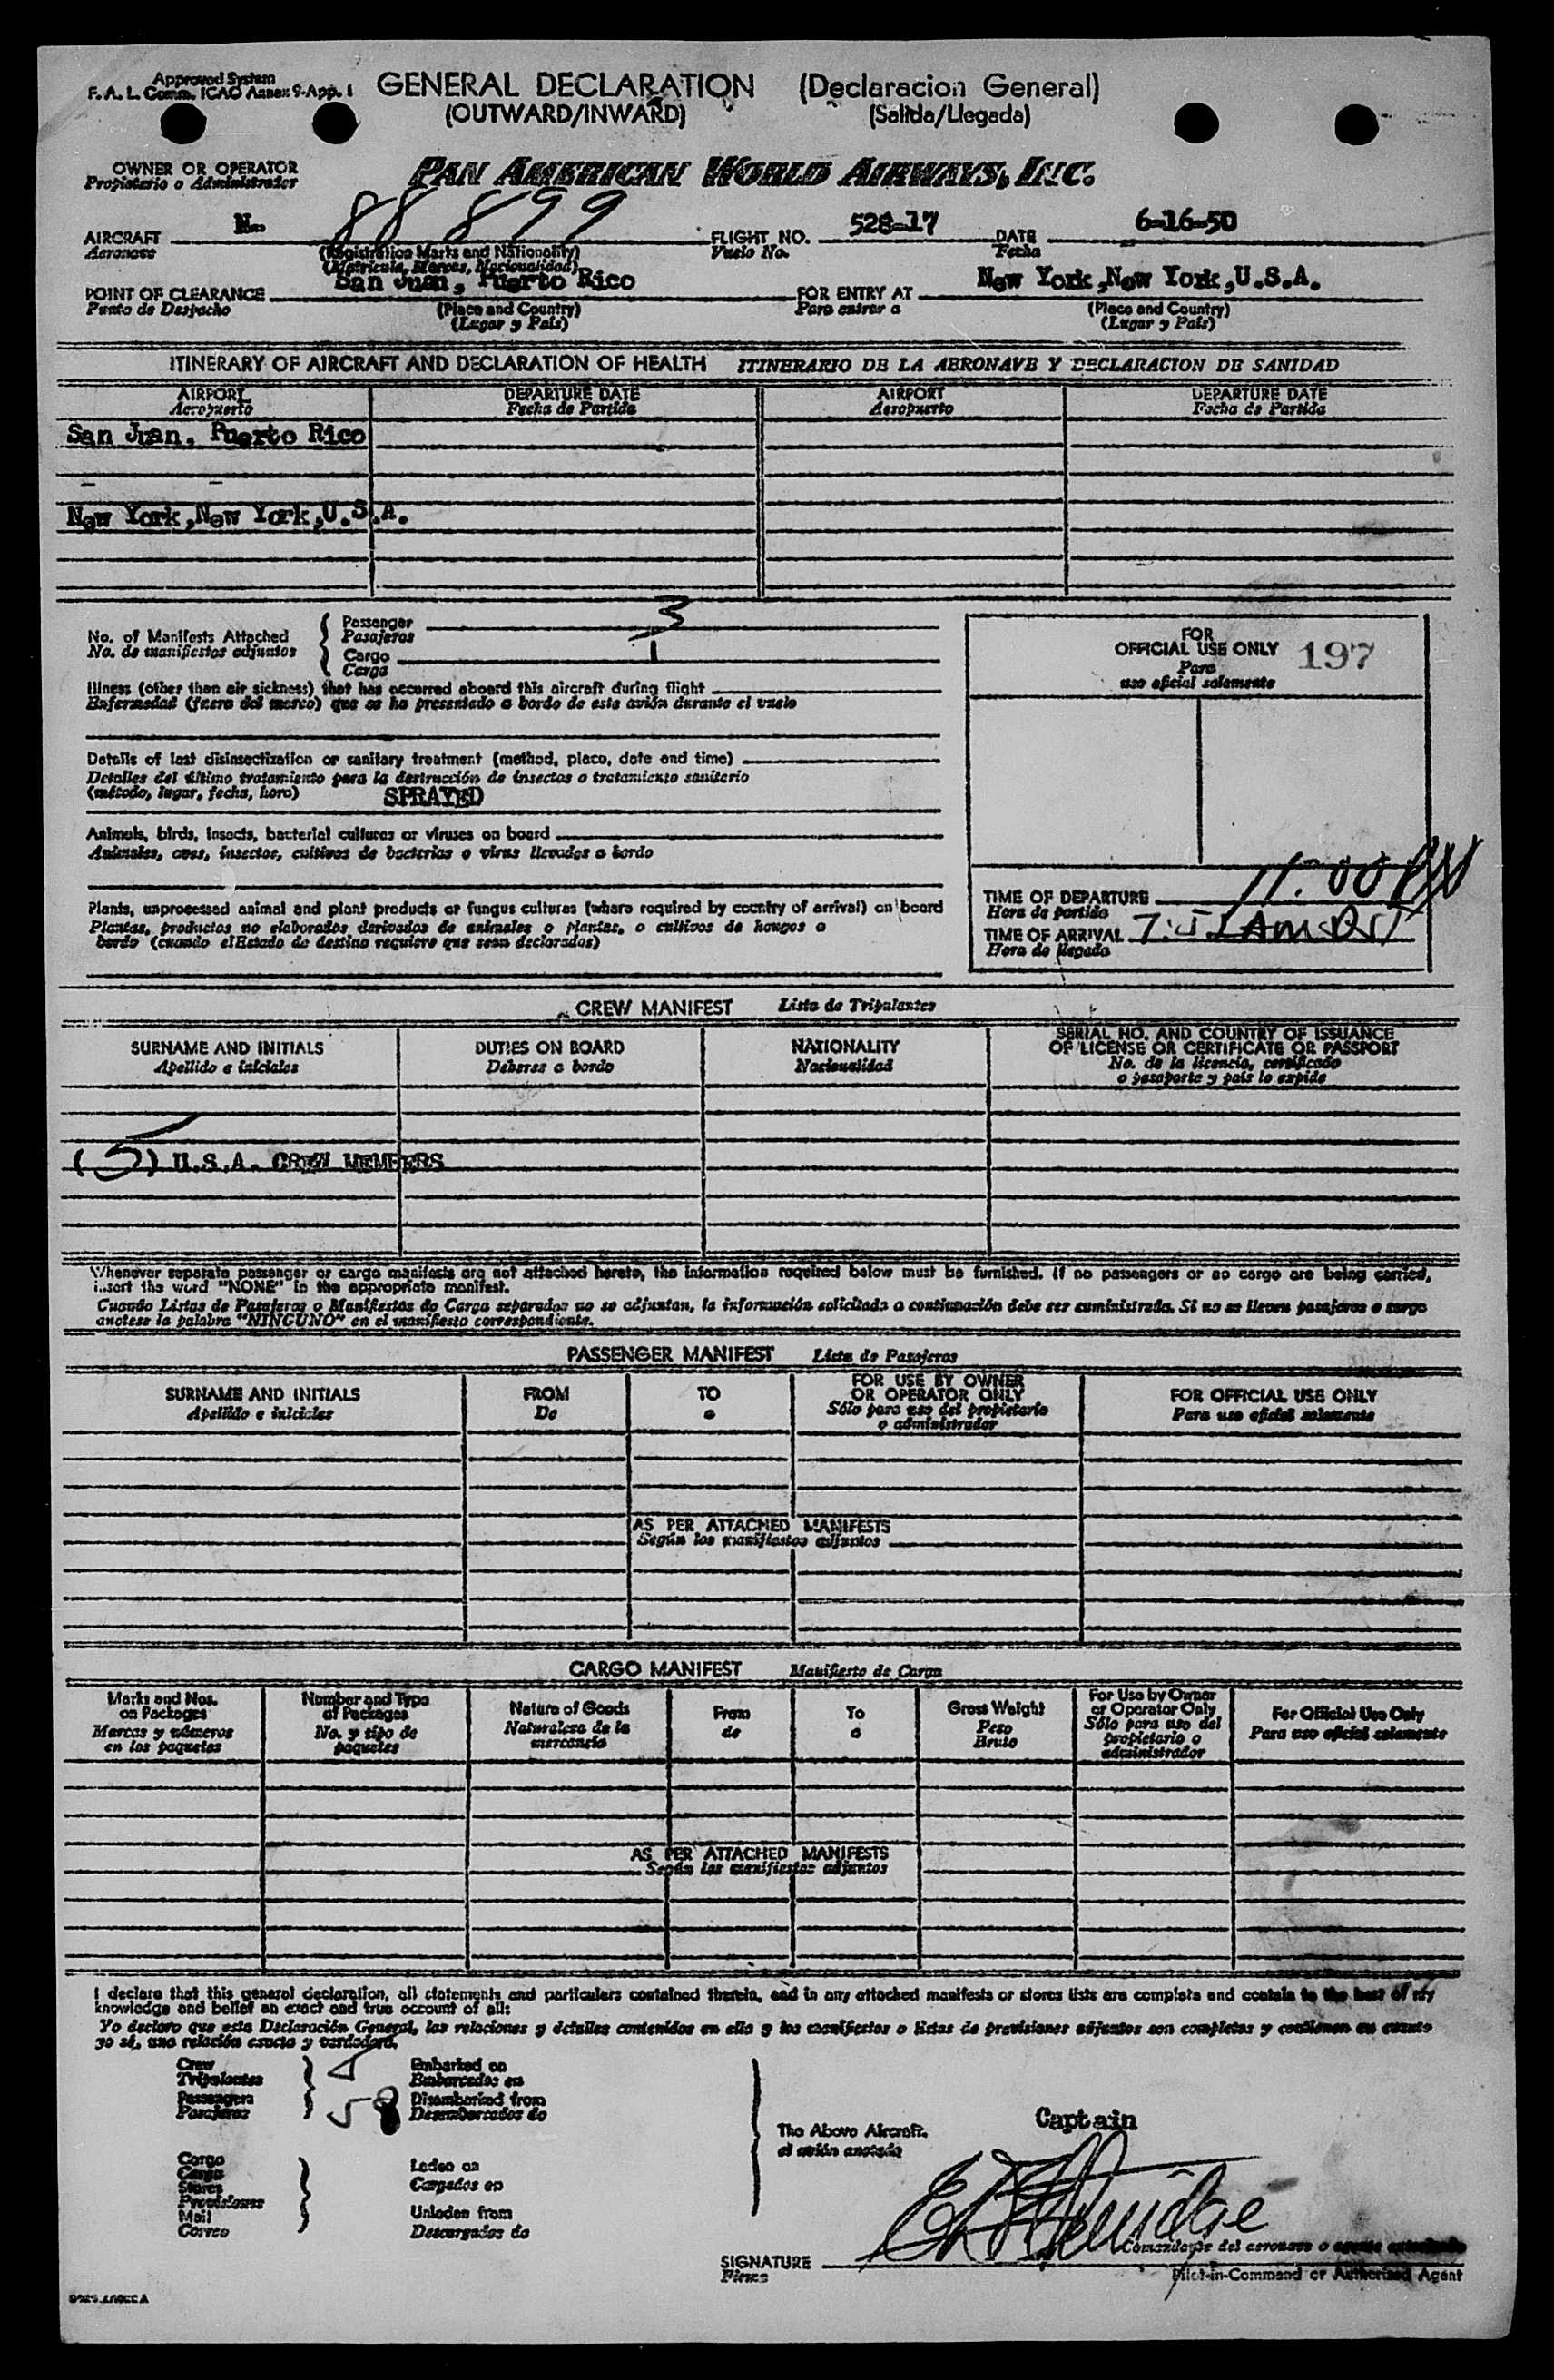 Approved System
F. A. L. Comm. ICAO Annex 9-App. 1
GENERAL DECLARATION (Declaracion General)
(OUTWARD/INWARD) (Salida/Llegada)
OWNER OR OPERATOR
Propietario o Administrador
PAN AMERICAN WORLD AIRWAYS, INC.
AIRCRAFT N- 88899 FLIGHT NO. 528-17 DATE 6-16-50
Aeronave (Registration Marks and Nationality) Vuelo No. Fecha
(Matricula, Marcas, Nacionalidad)
POINT OF CLEARANCE San Juan, Puerto Rico FOR ENTRY AT New York,New York,U.S.A.
Punto de Despacho (Place and Country) Para entrar a (Place and Country)
(Lugar y País) (Lugar y País)
ITINERARY OF AIRCRAFT AND DECLARATION OF HEALTH ITINERARIO DE LA AERONAVE Y DECLARACION DE SANIDAD
AIRPORT DEPARTURE DATE AIRPORT DEPARTURE DATE
Aeropuerto Fecha de Partida Aeropuerto Fecha de Partida
San Juan, Puerto Rico
- -
New York,New York,U.S.A.
No. of Manifests Attached
No. de manifiestos adjuntos
Passenger 3
Pasajeros
Cargo 1
Carga
FOR
OFFICIAL USE ONLY 197
Para
uso oficial solamente
Illness (other than air sickness) that has occurred aboard this aircraft during flight
Enfermedad (fuera del mareo) que se ha presentado a bordo de este avión durante el vuelo
Details of last disinsectization or sanitary treatment (method, place, date and time)
Detalles del último tratamiento para la destrucción de insectos o tratamiento sanitario
(método, lugar, fecha, hora) SPRAYED
Animals, birds, insects, bacterial cultures or viruses on board
Animales, aves, insectos, cultivos de bacterias o virus llevados a bordo
Plants, unprocessed animal and plant products or fungus cultures (where required by country of arrival) on board
Plantas, productos no elaborados derivados de animales o plantas, o cultivos de hongos a
bordo (cuando el Estado de destino requiere que sean declarados)
TIME OF DEPARTURE 11:00 PM
Hora de partida
TIME OF ARRIVAL
Hora de llegada
CREW MANIFEST Lista de Tripulantes
SURNAME AND INITIALS DUTIES ON BOARD NATIONALITY SERIAL NO. AND COUNTRY OF ISSUANCE
OF LICENSE OR CERTIFICATE OR PASSPORT
Apellido e iniciales Deberes a bordo Nacionalidad No. de la licencia, certificado
o pasaporte y país lo expide
(5) U.S.A. CREW MEMBERS
Whenever separate passenger or cargo manifests are not attached hereto, the information required below must be furnished. If no passengers or no cargo are being carried,
insert the word "NONE" in the appropriate manifest.
Cuando Listas de Pasajeros o Manifiestos de Carga separados no se adjuntan, la información solicitada a continuación debe ser suministrada. Si no se lleven pasajeros o carga
anotese la palabra "NINGUNO" en el manifiesto correspondiente.
PASSENGER MANIFEST Lista de Pasajeros
SURNAME AND INITIALS FROM TO FOR USE BY OWNER
OR OPERATOR ONLY FOR OFFICIAL USE ONLY
Apellido e iniciales De a Sólo para uso del propietario
o administrador Para uso oficial solamente
AS PER ATTACHED MANIFESTS
Según los manifiestos adjuntos
CARGO MANIFEST Manifiesto de Carga
Marks and Nos.
on Packages
Marcas y números
en los paquetes
Number and Type
of Packages
No. y tipo de
paquetes
Nature of Goods
Naturaleza de la
mercancía
From
de
To
a
Gross Weight
Peso
Bruto
For Use by Owner
or Operator Only
Sólo para uso del
propietario o
administrador
For Official Use Only
Para uso oficial solamente
AS PER ATTACHED MANIFESTS
Según los manifiestos adjuntos
I declare that this general declaration, all statements and particulars contained therein, and in any attached manifests or stores lists are complete and contain to the best of my
knowledge and belief an exact and true account of all:
Yo declaro que esta Declaración General, las relaciones y detalles contenidos en ella y los manifiestos o listas de provisiones adjuntos son completos y contienen en cuanto
yo sé, una relación exacta y verdadera.
Crew
Tripulantes
Passengers
Pasajeros
5
58
Embarked on
Embarcados en
Disembarked from
Desembarcados de
Cargo
Carga
Stores
Provisiones
Mail
Correo
Laden on
Cargados en
Unladen from
Descargados de
The Above Aircraft.
el avión anotado
Captain
SIGNATURE
Firma
Comandante del aeronave o agente autorizado
Pilot-in-Command or Authorized Agent